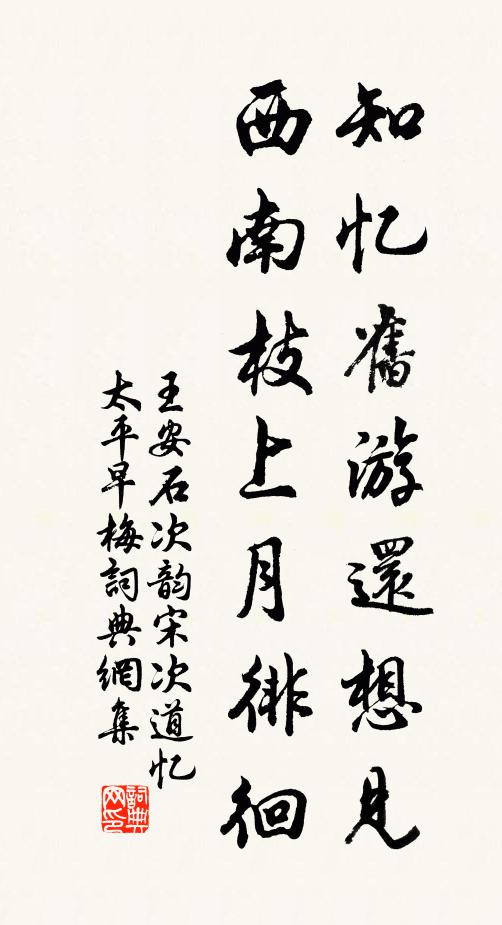 知忆舊游還想見
西南枝上月徘徊
王安石次韵宋次道忆
太平早梅詞典網集
詞典网印